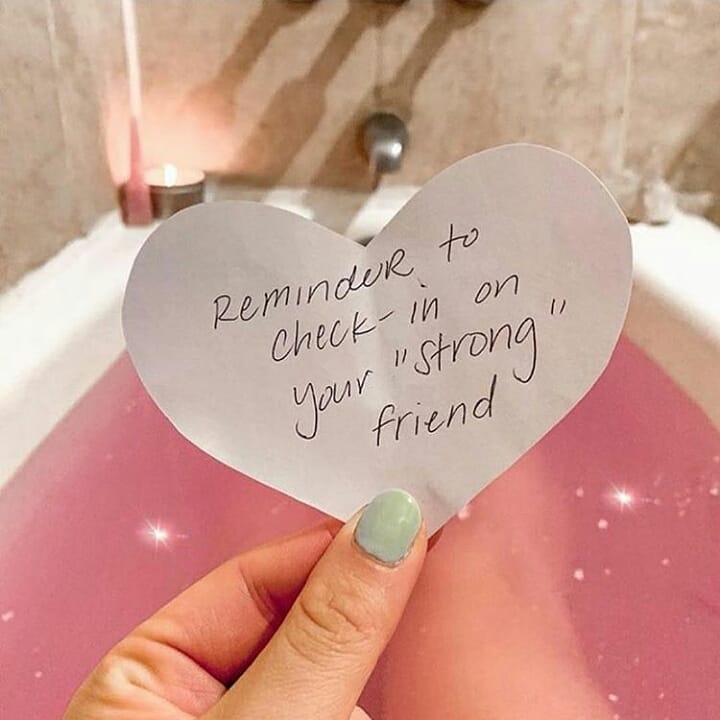 Reminder to
check-in on
your "strong"
friend